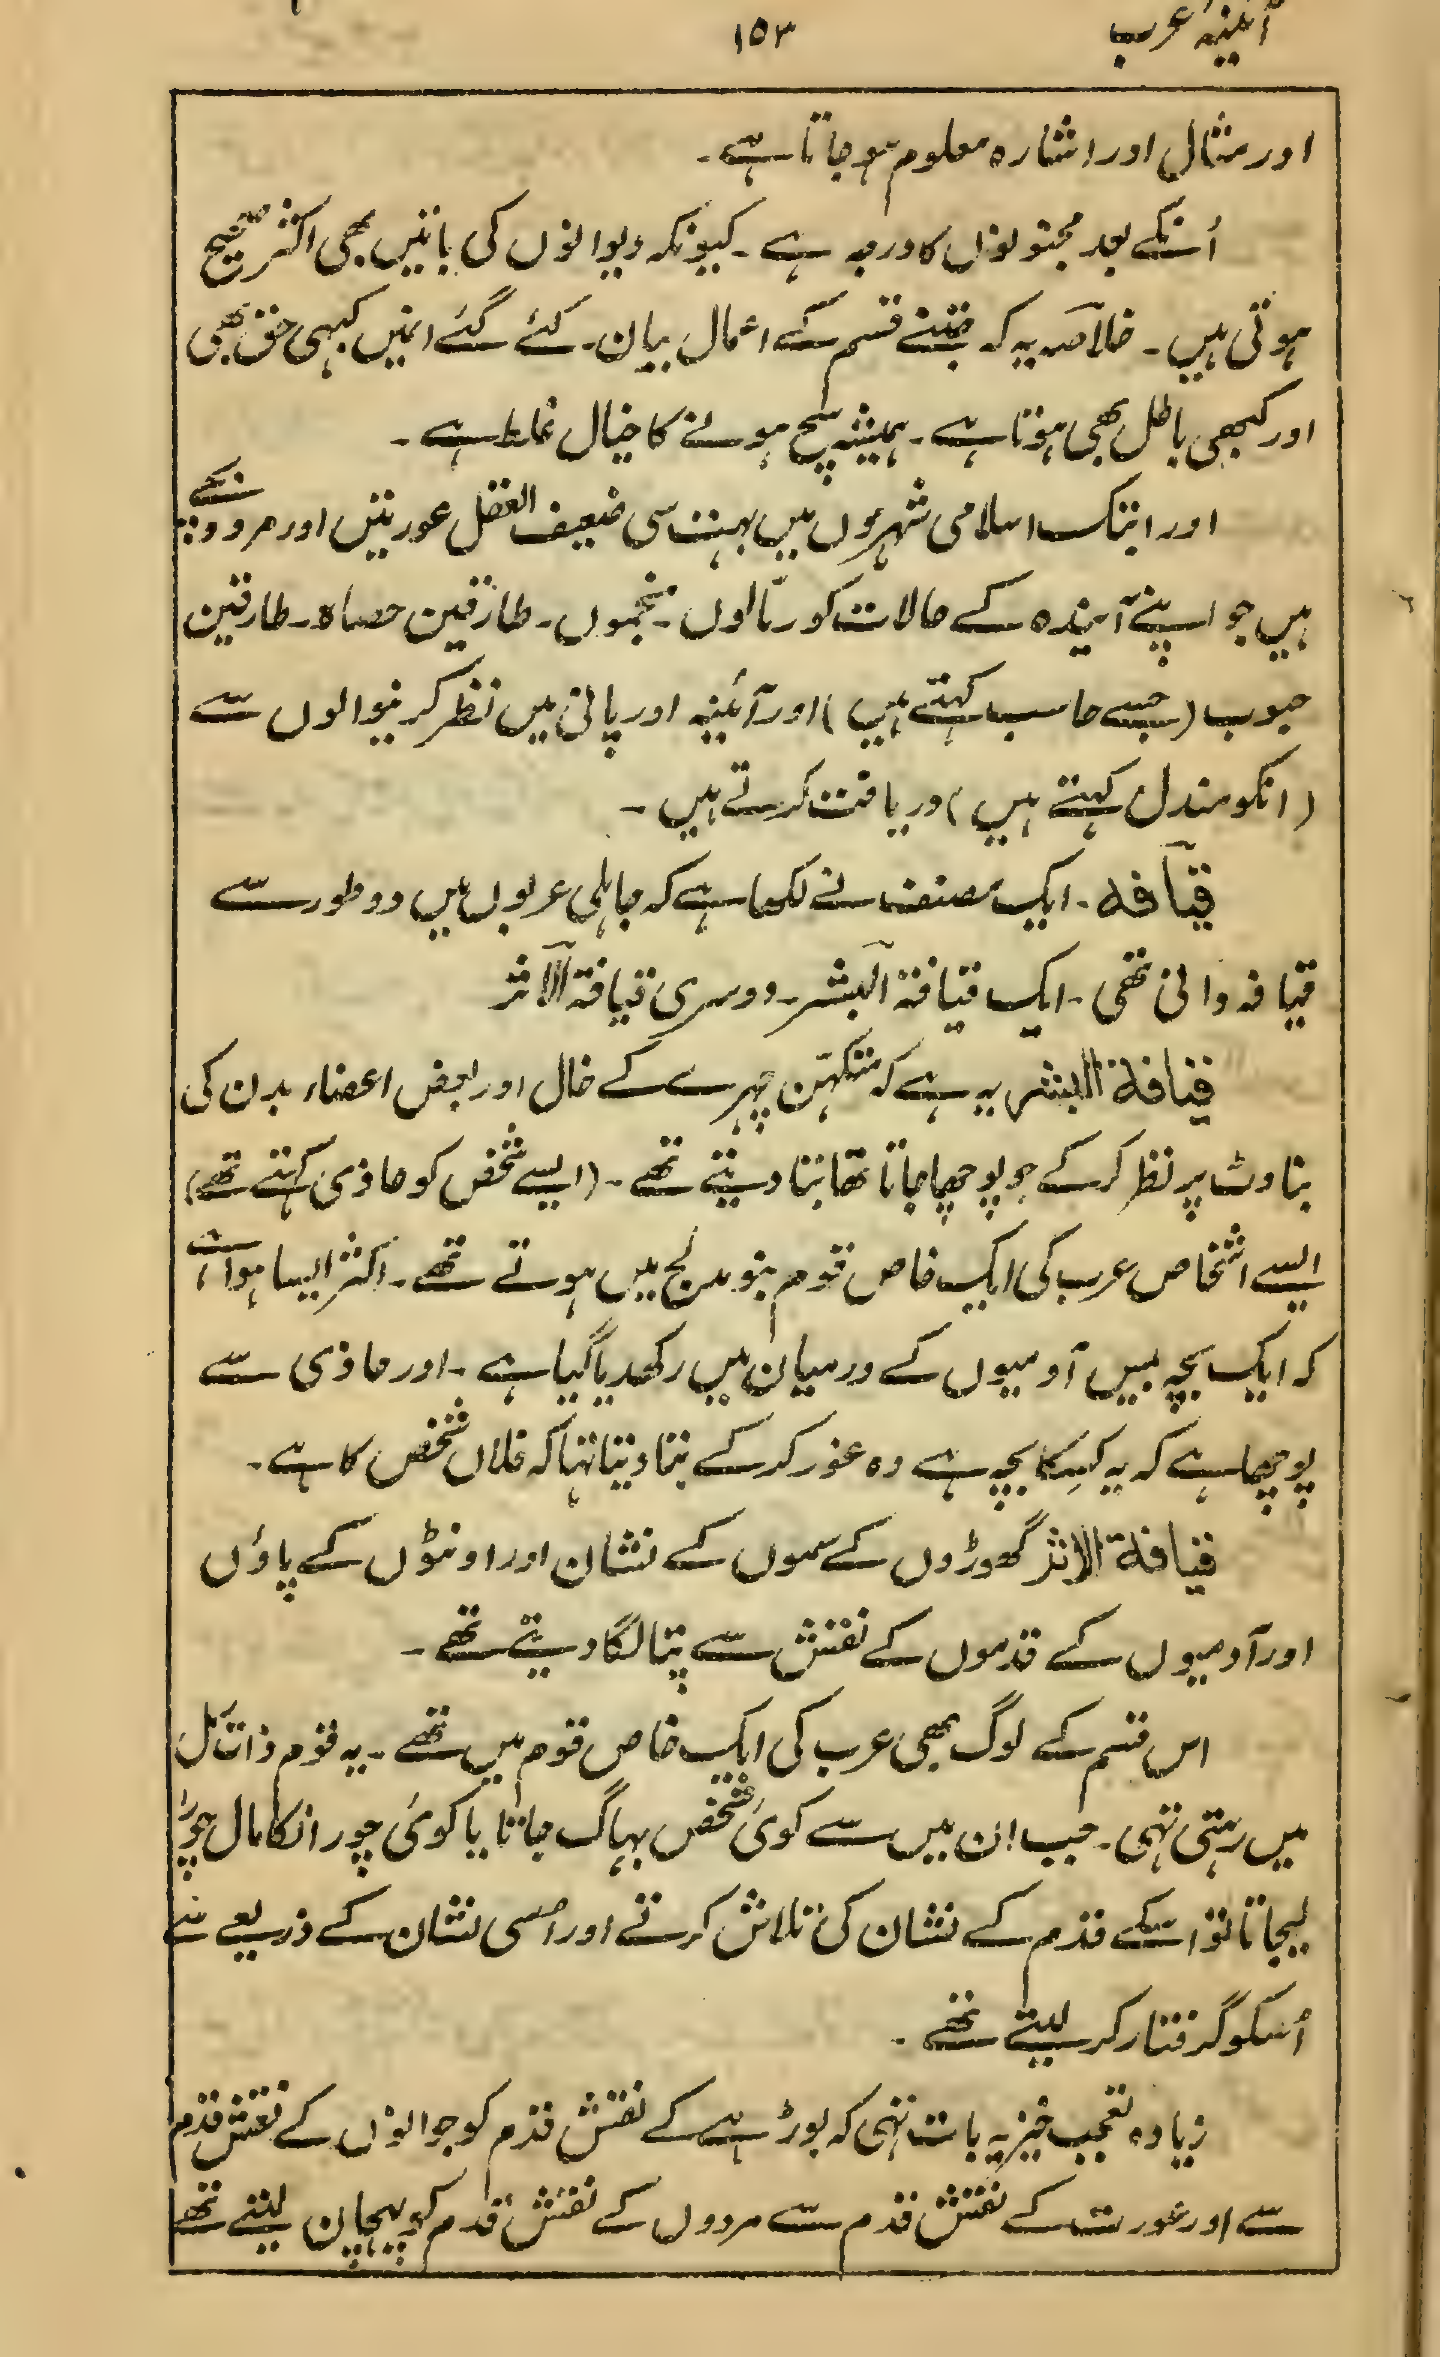 آئینۂ عرب
۱۵۳
اور مثال اور اشارہ معلوم ہو جاتا ہے۔
اُنکے بعد مجنونوں کا درجہ ہے۔ کیونکہ دیوانوں کی باتیں بھی اکثر صحیح
ہوتی ہیں۔ خلاصہ یہ کہ جتنے قسم کے اعمال بیان۔ کئے گئے انمیں کبہی حق بھی
اور کبھی باطل بھی ہوتا ہے۔ ہمیشہ سچ ہونے کا خیال غلط ہے۔
اور ابتک اسلامی شہروں میں بہت سی ضعیف العقل عورتیں اور مرد ویسے
ہیں جو اپنے آیندہ کے حالات کو رمّالوں۔ نجّموں۔ طارقین حصاہ۔ طارقین
حبوب (جسے حاسب کہتے ہیں) اور آئینہ اور پانی میں نظر کرنیوالوں سے
(انکو مندل کہتے ہیں) دریافت کرتے ہیں۔
قیافہ۔ ایک مصنف نے لکھا ہے کہ جاہلی عربوں میں دو طور سے
قیافہ دانی تھی۔ ایک قیافۃ البشر۔ دوسری قیافۃ الاثر
قیافۃ البشر یہ ہے کہ متکہّن چہرے کے خال اور بعض اعضاء بدن کی
بناوٹ پر نظر کرکے جو پوچھا جاتا تھا بتا دیتے تھے۔ (ایسے شخص کو حاذی کہتے تھے)
ایسے اشخاص عرب کی ایک خاص قوم بنو مدلج میں ہوتے تھے۔ اکثر ایسا ہوا ہے
کہ ایک بچہ بیس آدمیوں کے درمیان میں رکھدیا گیا ہے۔ اور حاذی سے
پوچھا ہے کہ یہ کِسکا بچہ ہے وہ غور کرکے بتا دیتا تہا کہ فلاں شخص کا ہے۔
قیافۃ الاثر گھوڑوں کے سموں کے نشان اور اونٹوں کے پاؤں
اور آدمیوں کے قدموں کے نقش سے پتا لگا دیتے تھے۔
اس قسم کے لوگ بھی عرب کی ایک خاص قوم میں تھے۔ یہ قوم ذات رمل
میں رہتی تہی۔ جب ان میں سے کوئی شخص بہاگ جاتا یا کوئی چور انکا مال چورا
لیجاتا تو اسکے قدم کے نشان کی تلاش کرتے اور اُسی نشان کے ذریعے سے
اُسکو گرفتار کر لیتے تھے۔
زیادہ تعجب خیز یہ بات تہی کہ بوڑہے کے نقش قدم کو جوانوں کے نقش قدم
سے اور عورت کے نقش قدم سے مردوں کے نقش قدم کو پہچان لیتے تھے